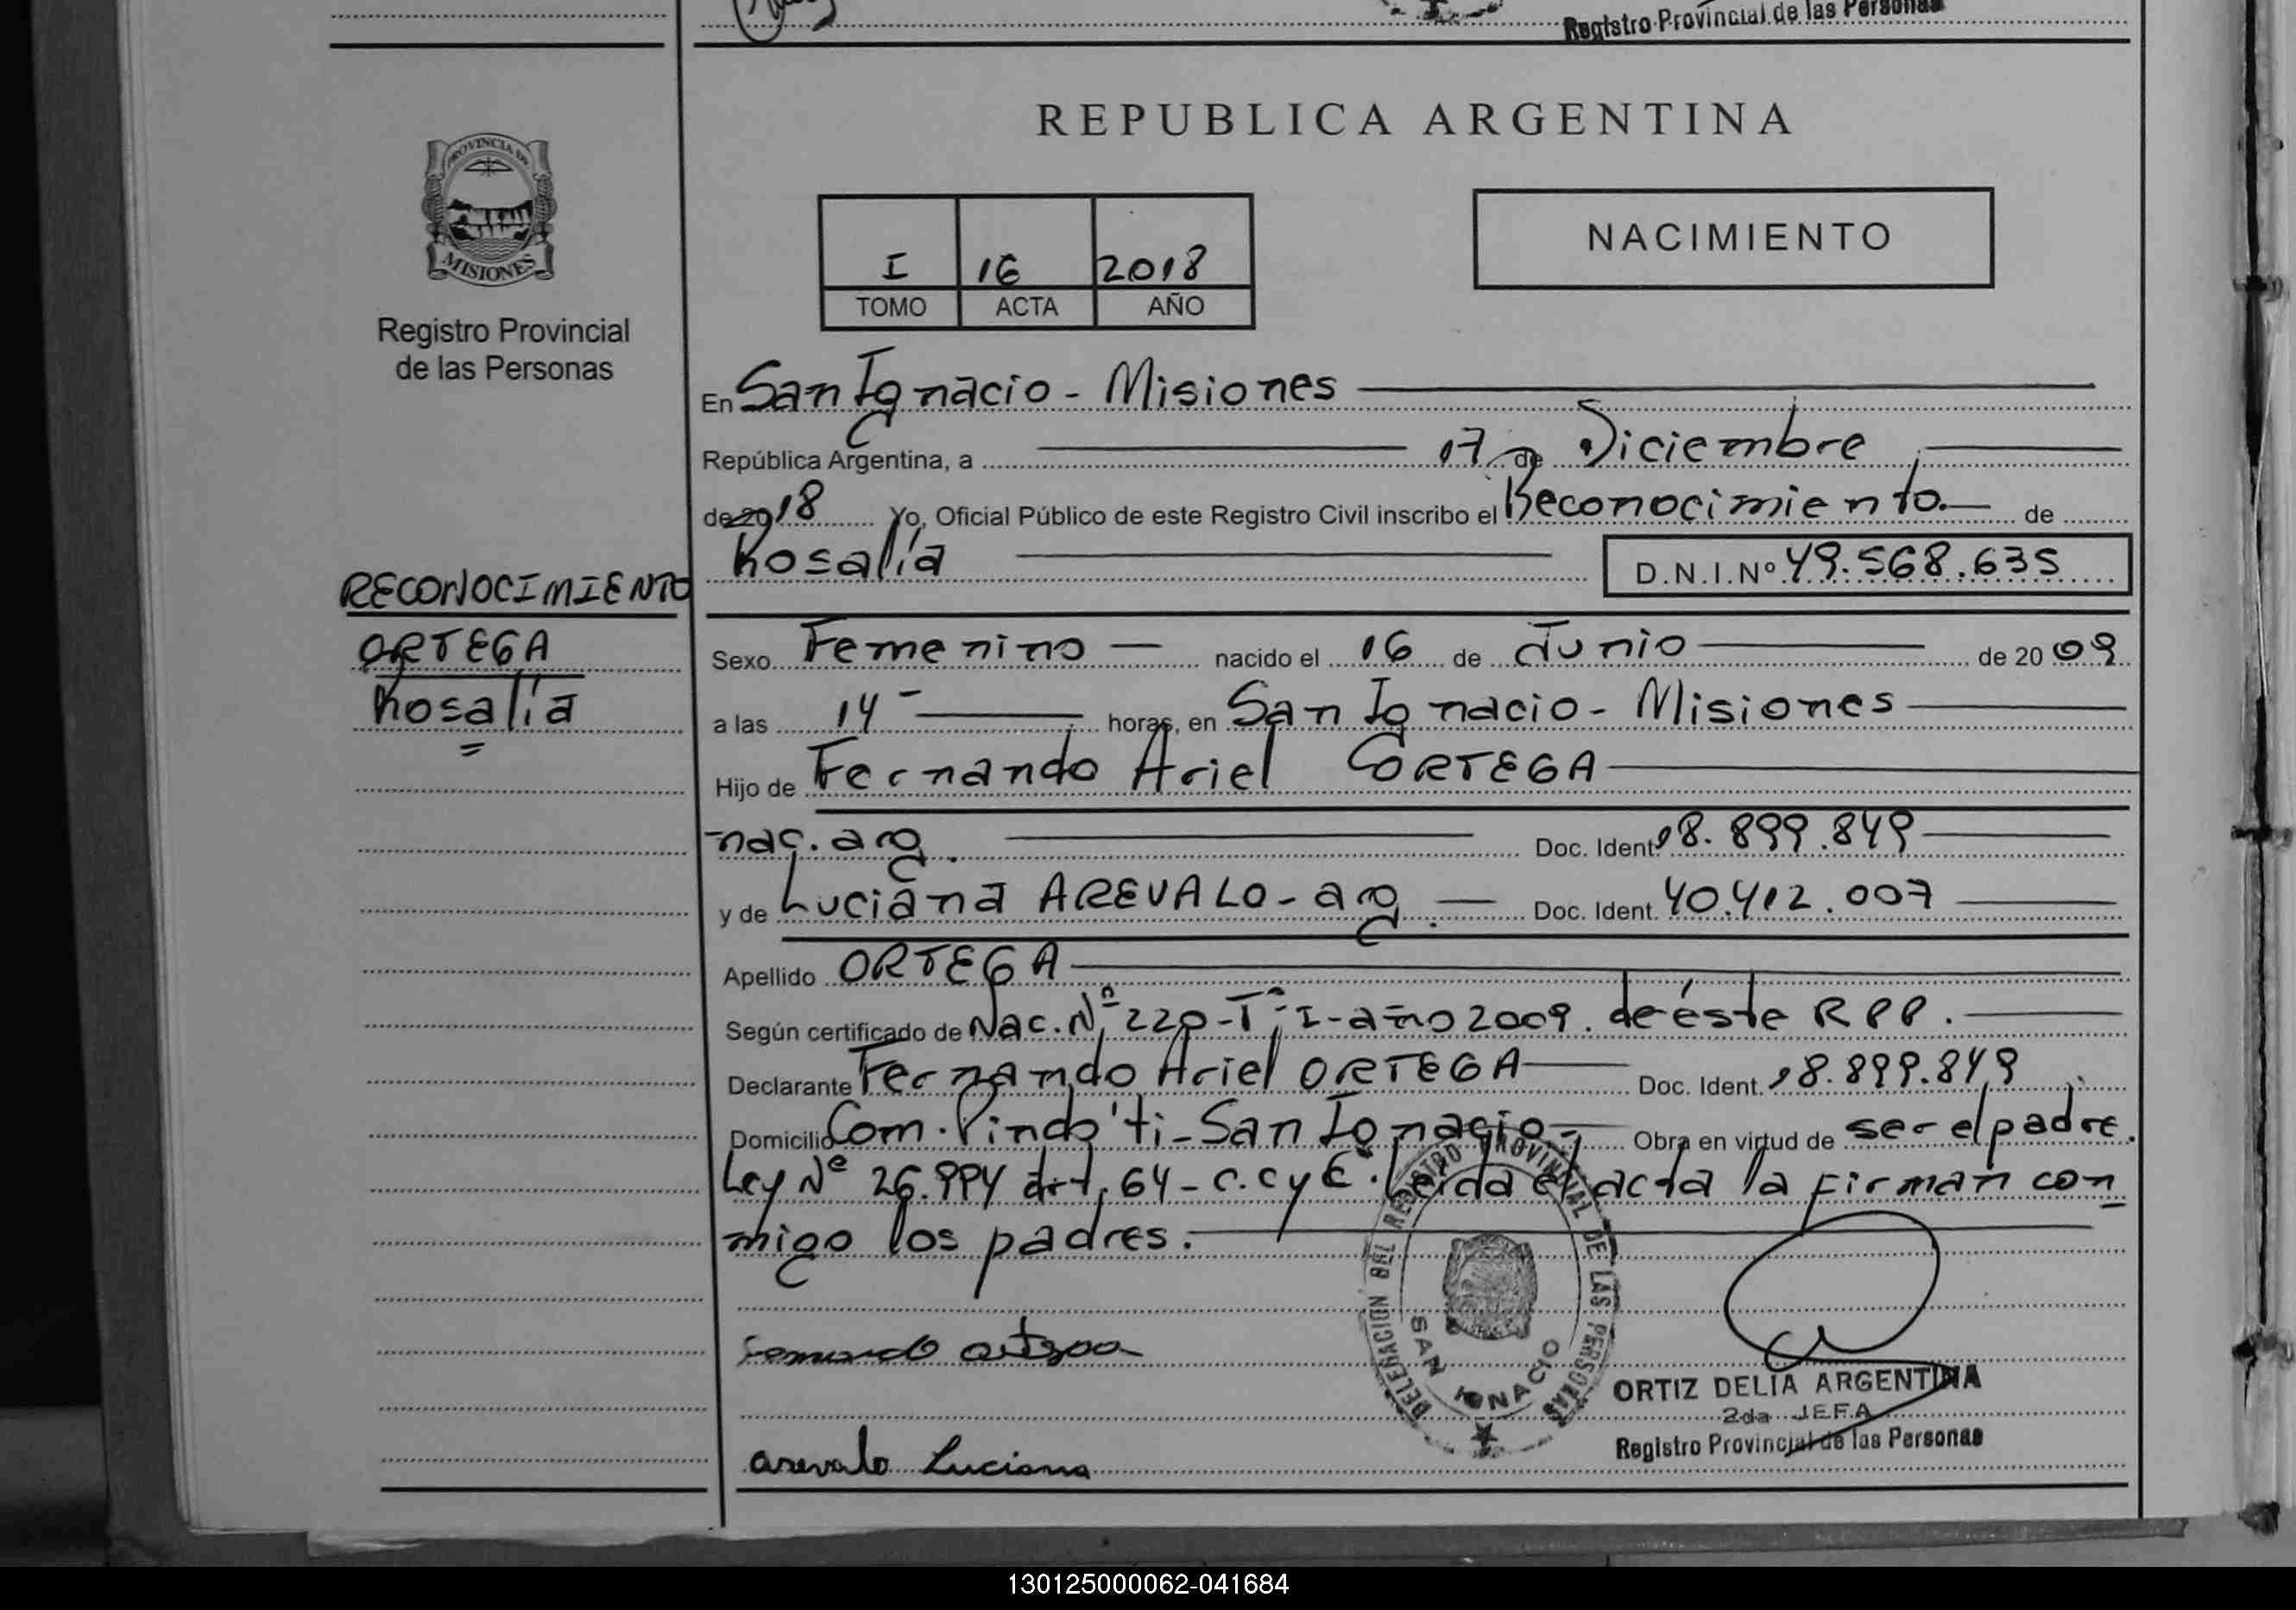 Registro Provincial de las Personas
REPUBLICA ARGENTINA
PROVINCIA DE
MISIONES
Registro Provincial
de las Personas
I 16 2018
TOMO ACTA AÑO
NACIMIENTO
En San Ignacio - Misiones
República Argentina, a 17 de Diciembre
de 2018 Yo, Oficial Público de este Registro Civil inscribo el Reconocimiento. de
Rosalía D.N.I.Nº 49.568.635
RECONOCIMIENTO
ORTEGA
Rosalía
Sexo Femenino nacido el 16 de Junio de 2009
a las 14 horas, en San Ignacio - Misiones
Hijo de Fernando Ariel ORTEGA
nac. arg. Doc. Ident. 18.899.849
y de Luciana AREVALO - arg. Doc. Ident. 40.412.007
Apellido ORTEGA
Según certificado de Nac. Nº 220 - Tº I - año 2009. de éste RPP.
Declarante Fernando Ariel ORTEGA Doc. Ident. 18.899.849
Domicilio Com. Pindo'ti - San Ignacio - Obra en virtud de ser el padre.
Ley Nº 26.994 Art. 64 - C.C y C. Leída el acta la firman con
migo los padres.
DELEGACION DEL REGISTRO PROVINCIAL DE LAS PERSONAS
SAN IGNACIO
Fernando ortega
ORTIZ DELIA ARGENTINA
2da JEFA
Registro Provincial de las Personas
arevalo Luciana
130125000062-041684